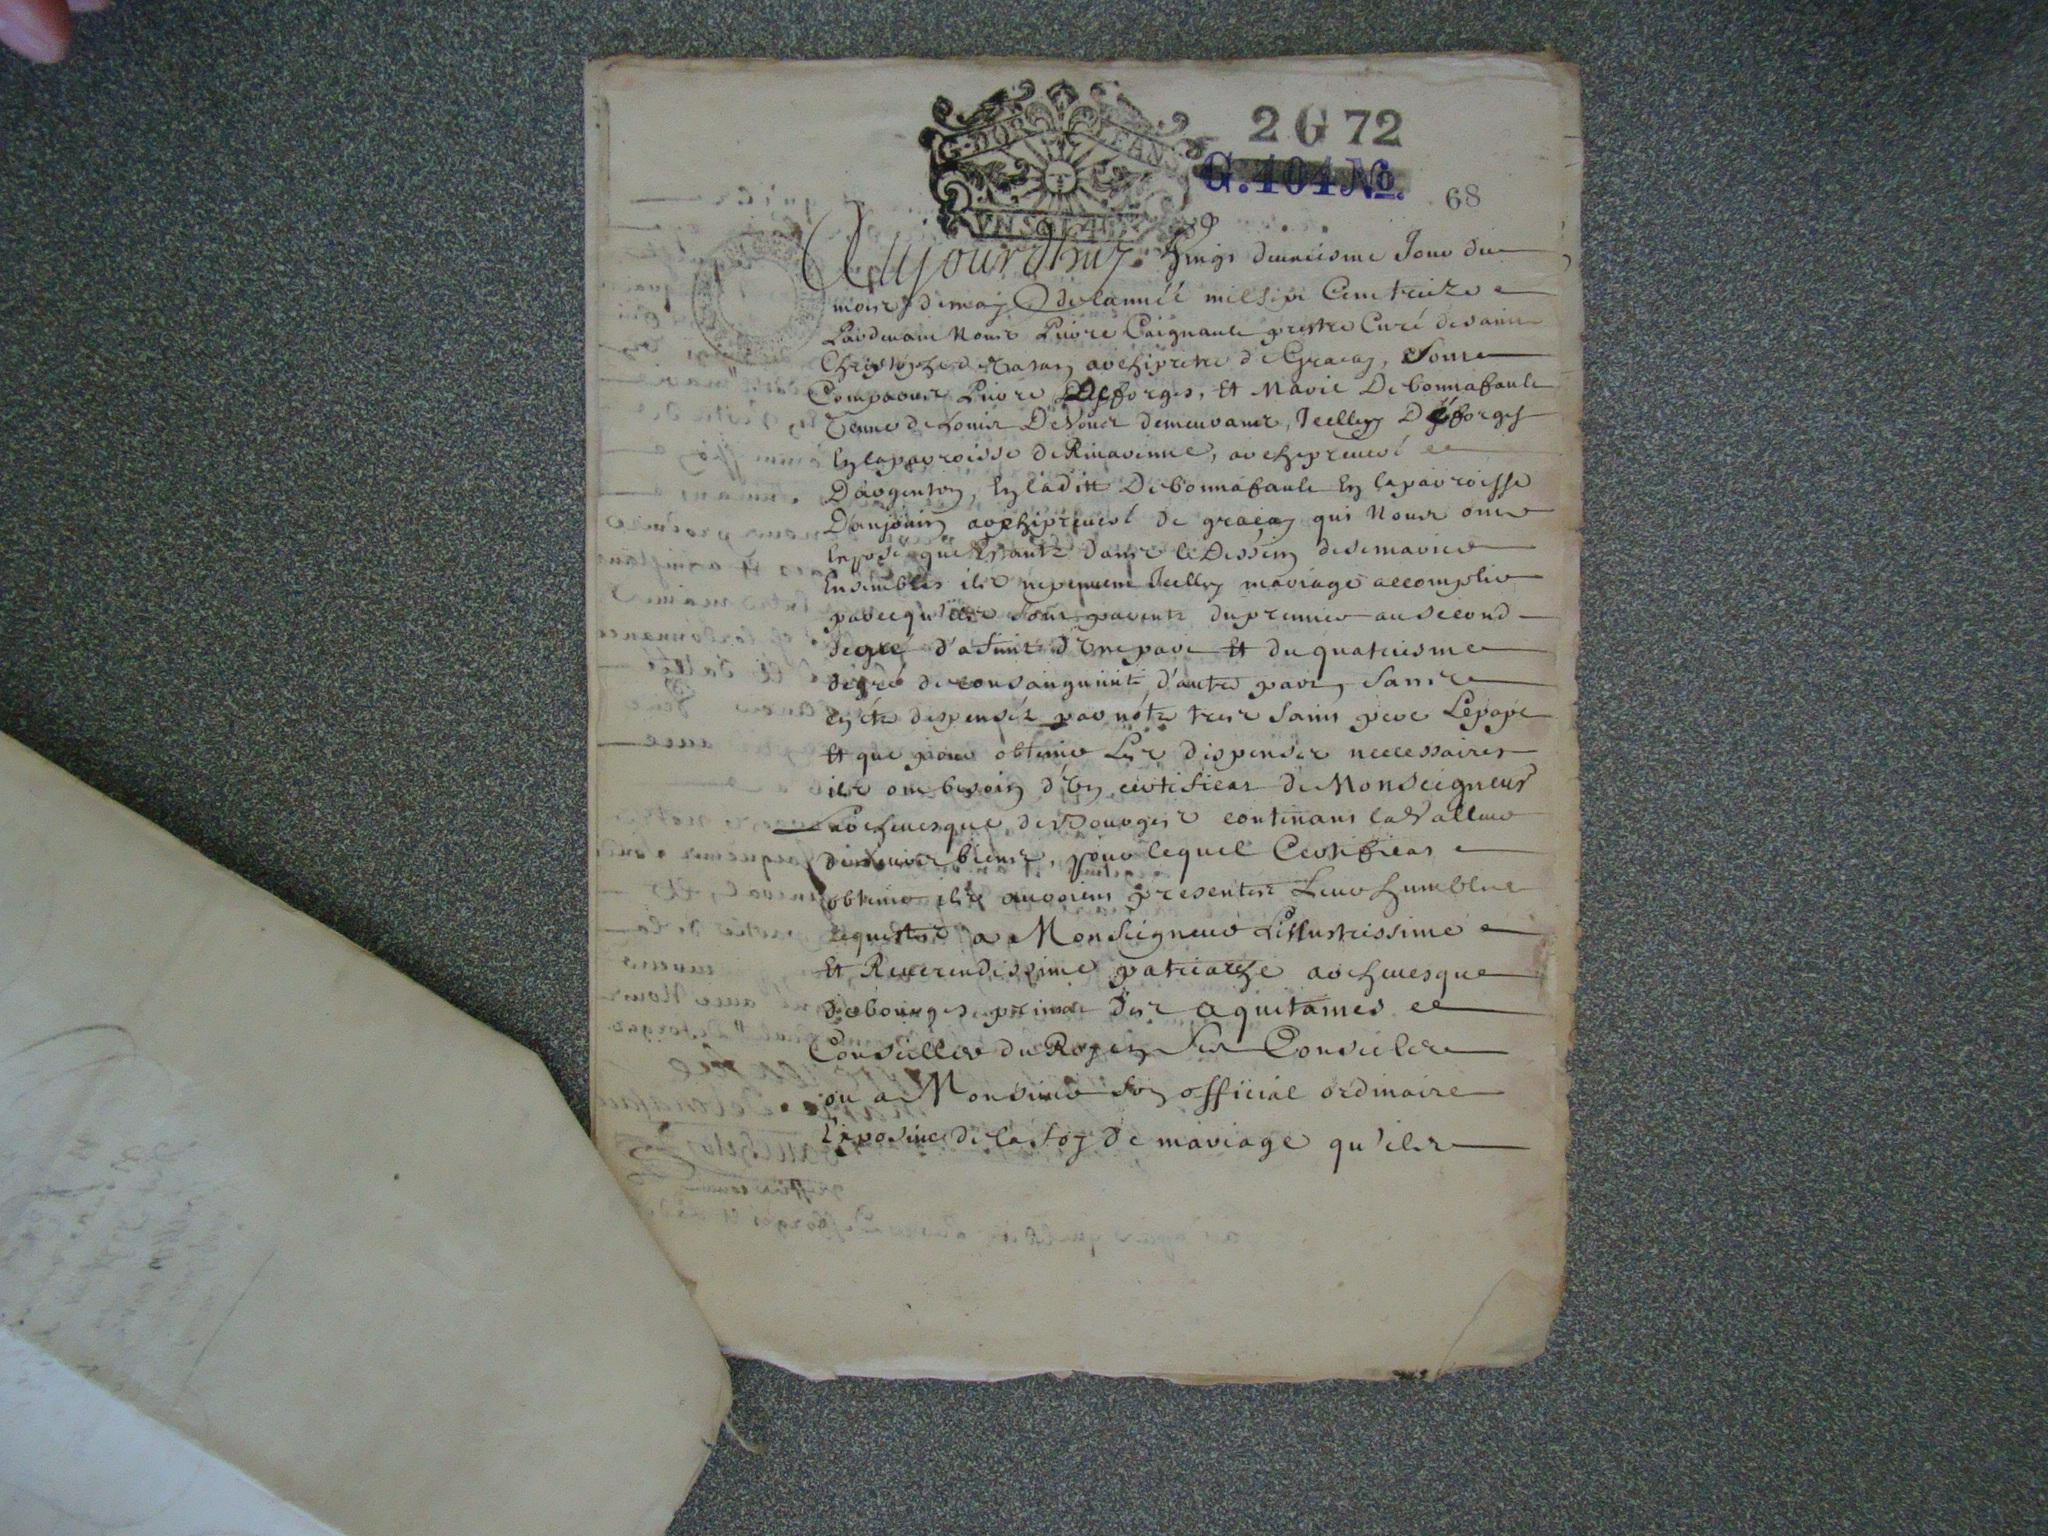 G. D'ORLEANS
UN SOL 4 D.
2 G 72
G. 404 No.
68
Aujourdhuy Vingt deuxiesme Jour du
mois de may de lannée mil sept Cent treize
Pardevant Nous prestre Curé de saint
Christophe archipretre de Graçay, Sont
Comparus Desforges, Et Marie Debonnafault
Veufve de Louis demeurans, Icelluy Desforges
En la parroisse de Rivarenne, archipreveré
Dargenton, Et ladite Debonnafault En la parroisse
Danjouin archipreveré de graçay qui Nous ont
Exposé que Estants dans le Dessein de se marier
Ensembles ils ne peuvent Icelluy mariage accomplir
parcequ'ils sont parents du premier au second
degré d'afinité d'Une part Et du quatriesme
degré de consanguinité d'autre part, Sans
estre dispensés par notre tres saint pere Le pape
Et que pour obtenir Les dispenses necessaires
ils ont besoin d'Un certificat de Monseigneur
Larchevesque de Bourges contenant la Valleur
de leurs biens, pour lequel Certificat
obtenir ils auroient presentés Leur humble
requeste a Monseigneur Lillustrissime
Et Reverendissime patriarche archevesque
de bourges primat des aquitaines
Conseiller du Roy en Ses Conseils
ou a Monsieur son official ordinaire
Expositive de la foy de mariage qu'ils